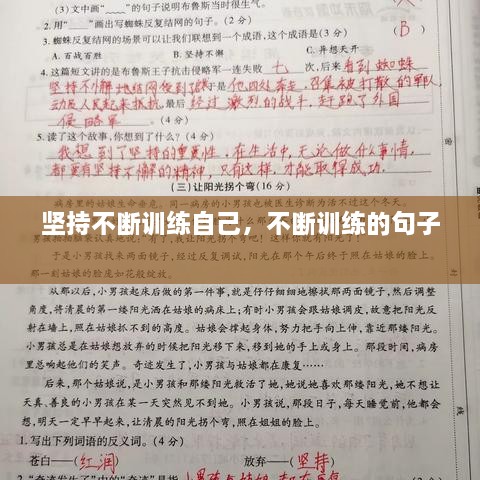 (3)文中"﹏﹏"的句子说明布鲁斯当时很生气。
2.用"——"画出写蜘蛛反复结网的句子。(2分)
3.蜘蛛反复结网的场景可以让我们联想到一个成语,这个成语是( B )
A.百战百胜 B.坚持不懈 C.异想天开
4.这篇短文讲的是布鲁斯王子抗击侵略军一连失败 七 次,后来 看到蜘蛛
坚持不懈地结网 于是 他四处奔走,召集被打散的军队,
动员人民起来抵抗,最后 经过激烈的战斗,赶跑了外国
侵略军。(4分)
5.读了这个故事,你想到了什么?(4分)
我想到了坚持的重要性,在生活中,无论做什么事情,
都要有坚持不懈的精神,只有这样,才能取得成功.
(三)让阳光拐个弯(16分)
病房里的姑娘生命垂危。同一病房的小男孩也被医生诊断为活不过这个
坚持不断训练自己,不断训练的句子
于是小男孩找来两面镜子,经过反复调试,阳光在那个午后终于照在姑娘的
一刻,姑娘的脸庞如花般绽放。
从那以后,小男孩起床后做的第一件事,就是仔仔细细地擦拭那两面镜子,然后调整
角度,将清晨的第一缕阳光洒在姑娘的病床上;有时小男孩会跟姑娘调皮,故意把阳光反
射在墙上,照在姑娘抓不到的高度。姑娘会撑起身体,努力把手向上伸,靠近那缕阳光。
小男孩总是在姑娘想放弃的时候把阳光移下来,移到她的手上或身上。那段时间,病房
里总会响起他们的笑声。奇迹发生了,小男孩与姑娘都在康复……
后来,那个姑娘说,是小男孩和那缕阳光救活了她,她说她喜欢那缕阳光,她不想让
天真、善良的小男孩在某一天突然见不到她。小男孩说,那段日子,每天睡觉前,他都会
想,明天一定早早起来,让清晨的阳光拐个弯,照在姑娘的脸上。
1.写出下列词语的反义词。(4分)
苍白——( 红润 ) 放弃——( 坚持 )
2."奇迹发生了"中的"奇迹"是指